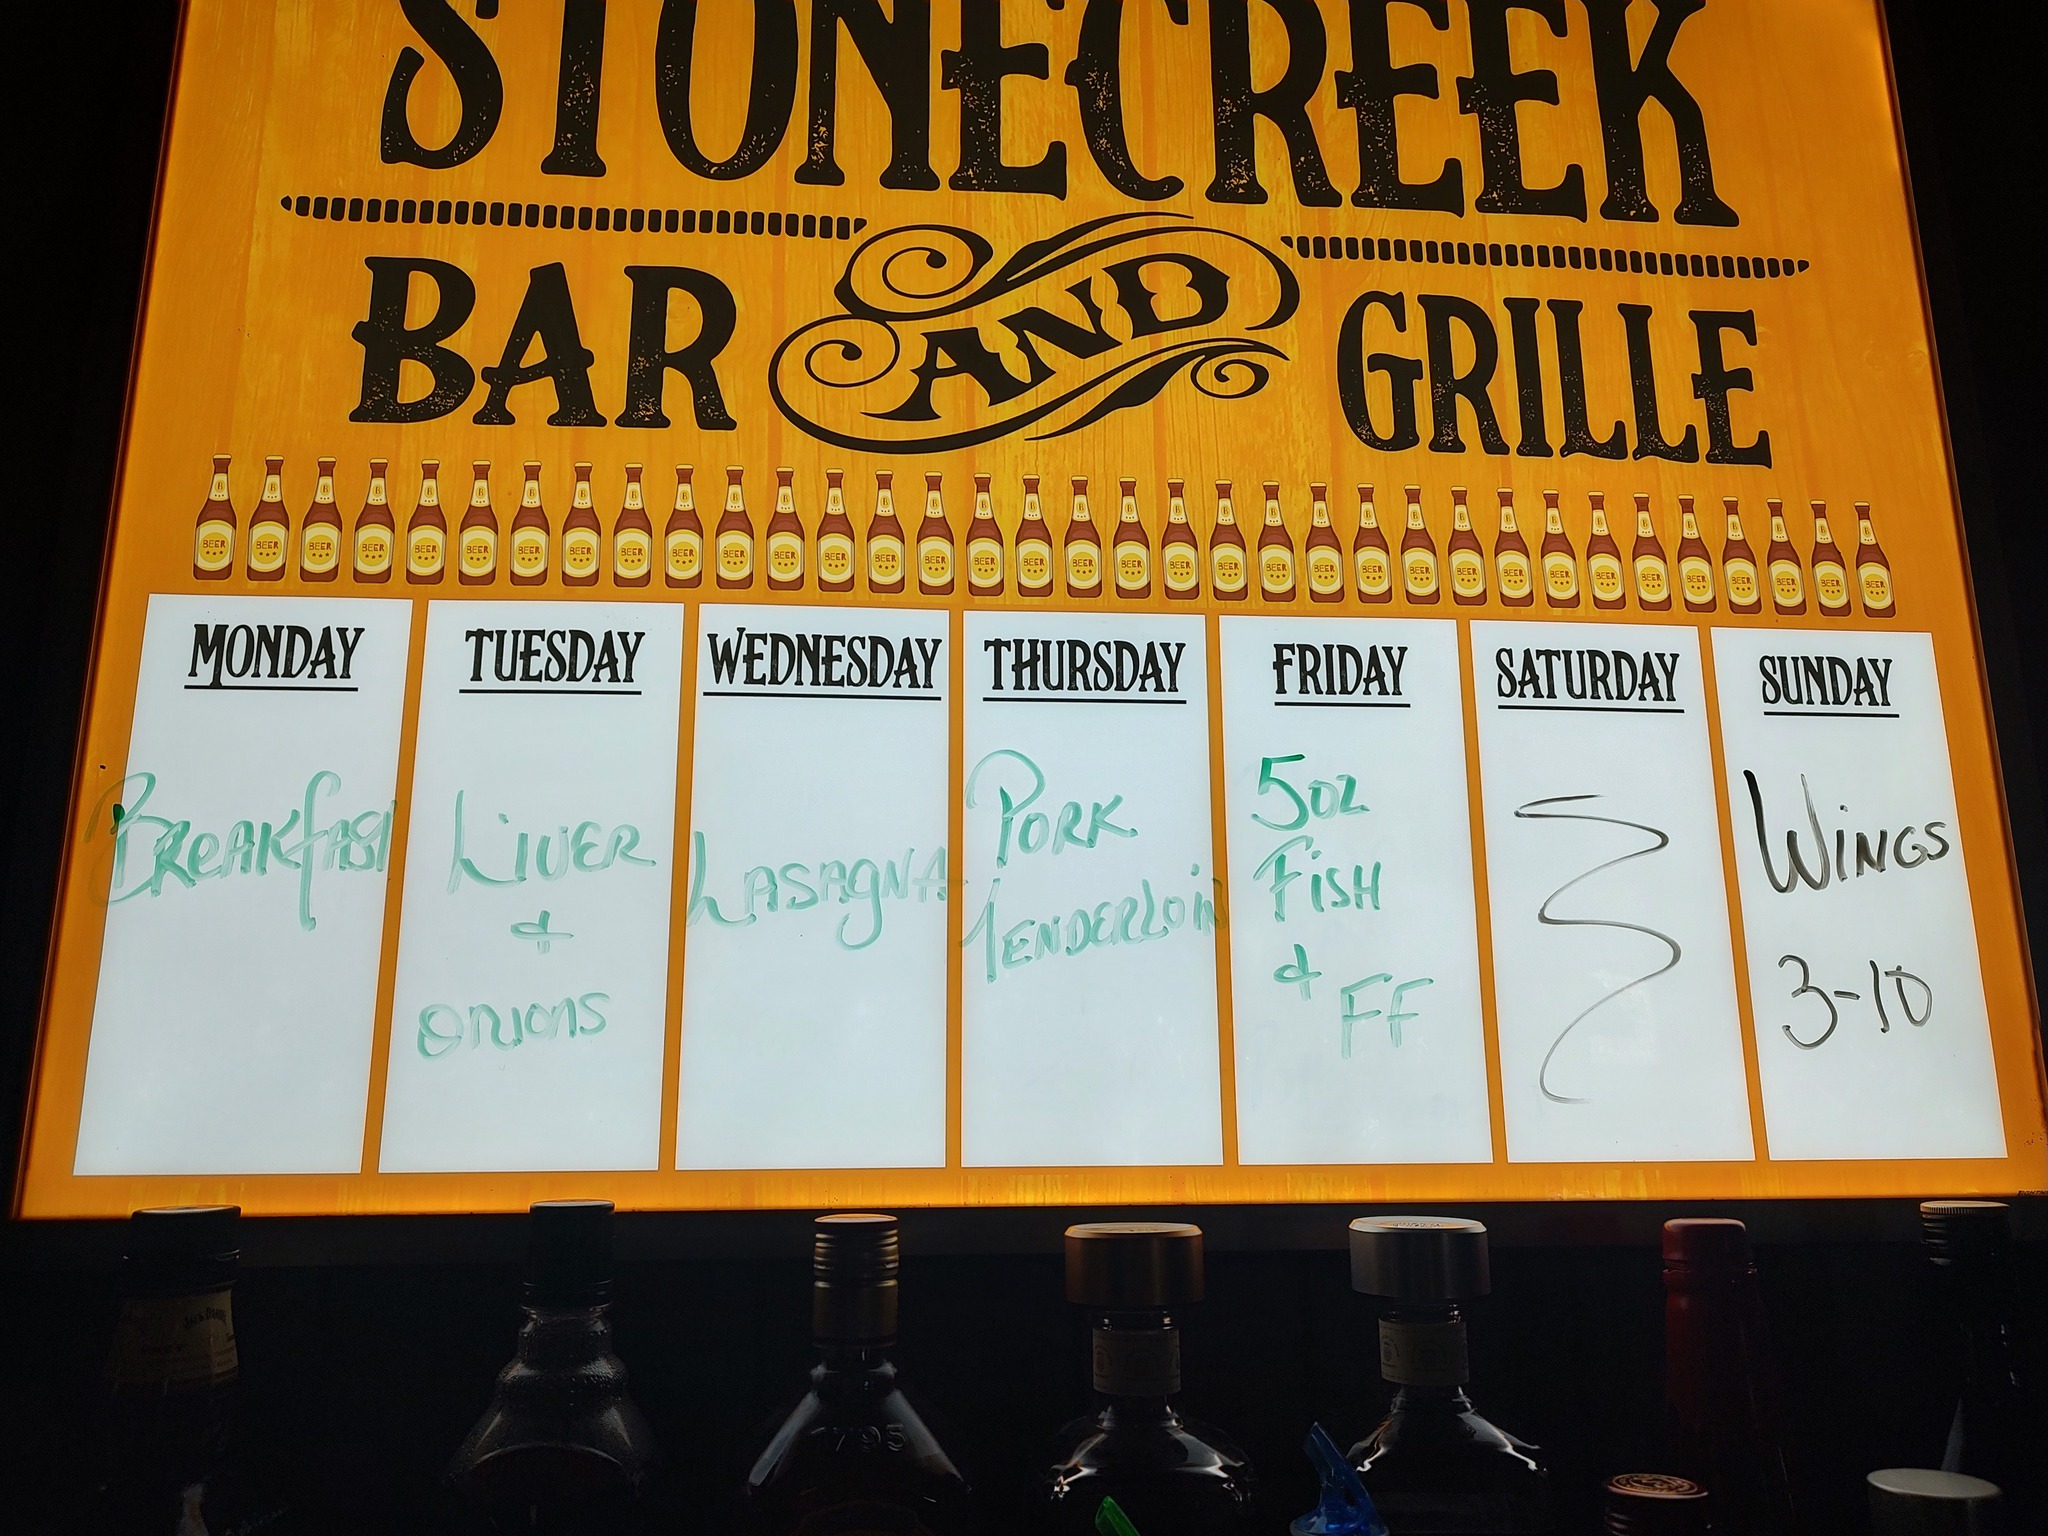 STONECREEK
BAR AND GRILLE
MONDAY
BREAKfAST
TUESDAY
LIVER
&
ONIONS
WEDNESDAY
LASAgNA
THURSDAY
PORK
TENDERLOIN
FRIDAY
5oz
FISH
&
FF
SATURDAY
SUNDAY
WINGS
3-10
BEER
1795